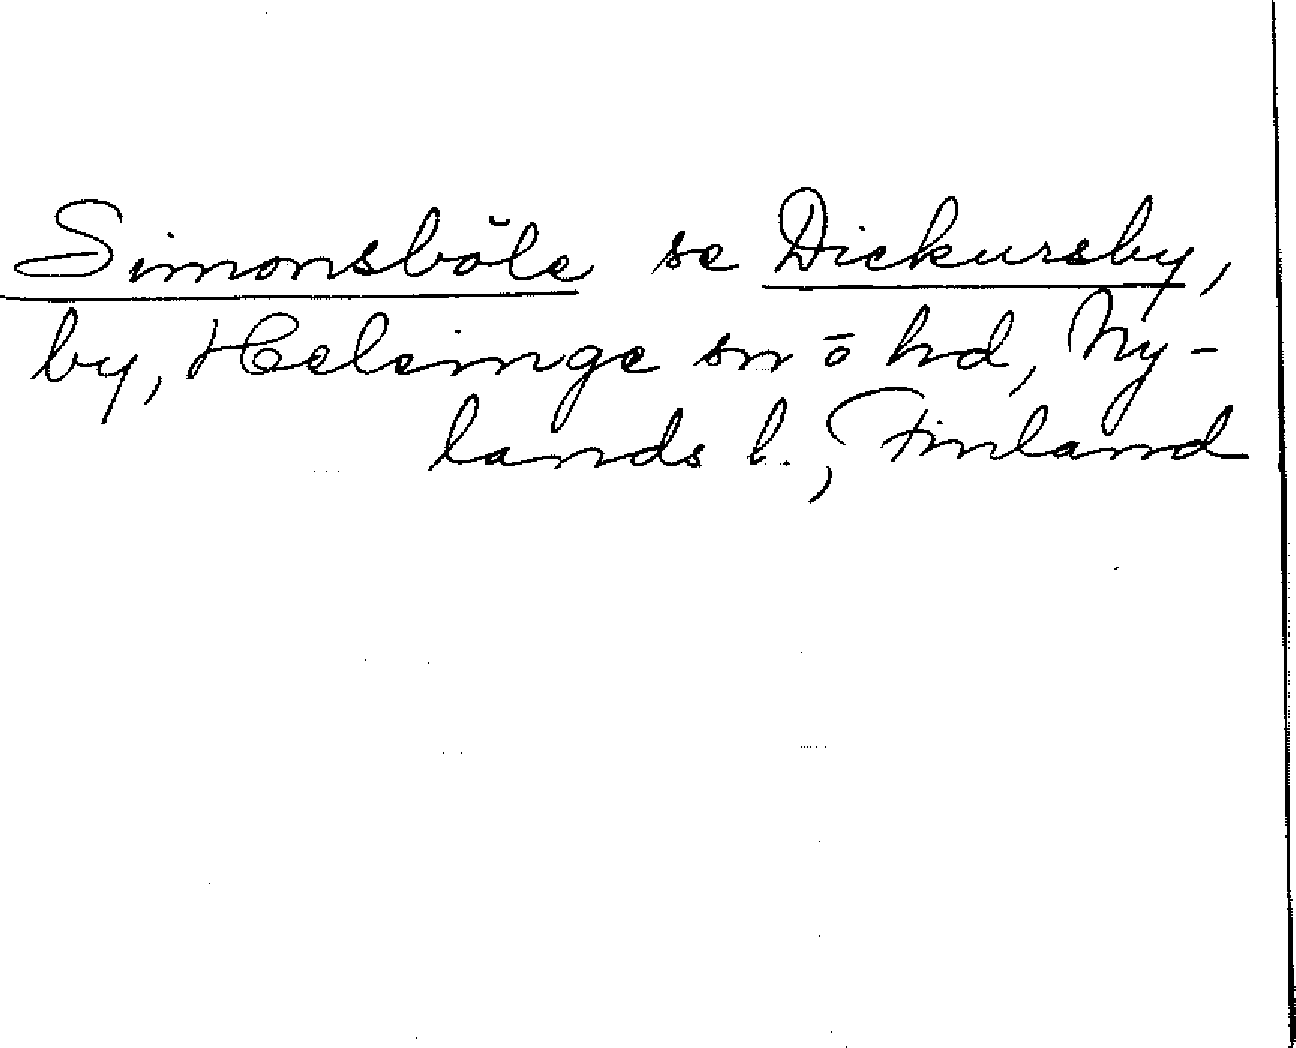 Simonsböle se Dickursby,
by, Helsinge sn ō hd, Ny-
lands l., Finland